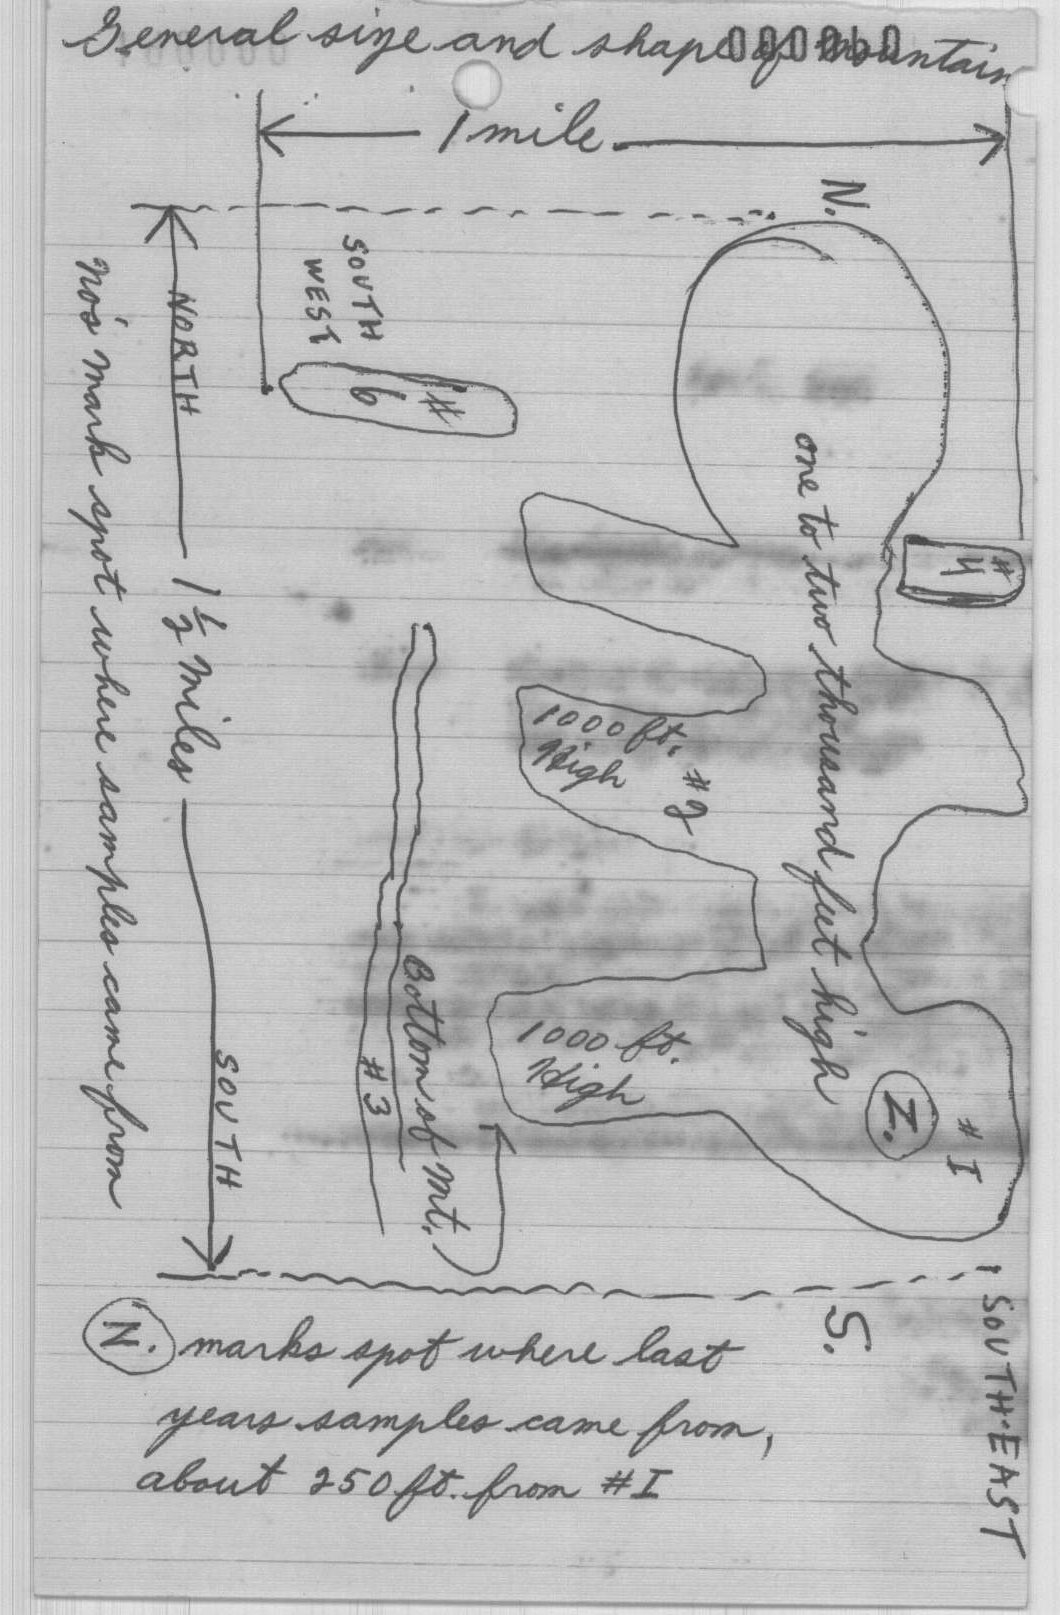 General size and shape of mountain
1 mile
N.
SOUTH
WEST
# 6
# 4
NORTH
1 1/2 miles
SOUTH
No's mark spot where samples came from
one to two thousand feet high
1000 ft.
High
# 2
1000 ft.
High
Bottom of Mt.
# 3
N.
# I
S.
SOUTH-EAST
N. marks spot where last
years samples came from,
about 250 ft. from # I